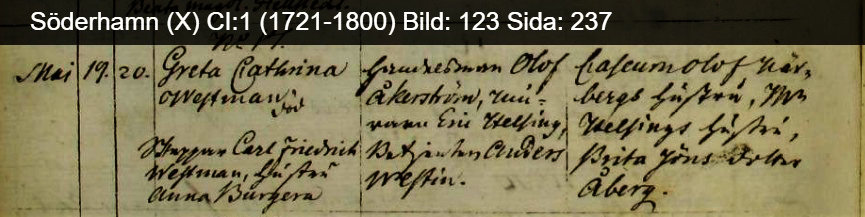 Söderhamn (X) CI:1 (1721-1800) Bild: 123 Sida: 237
Mai 19. 20. Greta Cathrina
Westman
Skeppar Carl Friedrich
Westman, Hustru
Anna Burgera
Handelsman Olof
Åkerström, mu-
raren Eric Helsing,
Betjenten Anders
Westin.
Olof Når-
bergs Hustru, Mr
Helsings Hustru,
Brita Jöns dotter
Åberg.